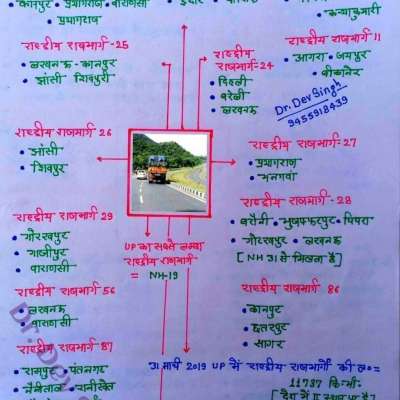 कानपुर • प्रयागराज • वाराणसी
• प्रयागराज
• इंदौर
• कन्याकुमारी
राष्ट्रीय राजमार्ग-25
• लखनऊ - कानपुर
• झांसी शिवपुरी
राष्ट्रीय
राजमार्ग
-24
• दिल्ली
• बरेली
• लखनऊ
राष्ट्रीय राजमार्ग 11
• आगरा • जयपुर
• बीकानेर
Dr. Dev Singh
9455918439
राष्ट्रीय राजमार्ग 26
• झांसी
• शिवपुर
राष्ट्रीय राजमार्ग-27
• प्रयागराज
• मनगवां
राष्ट्रीय राजमार्ग - 28
• बरौनी • मुजफ्फरपुर • पिपरा
• गोरखपुर • लखनऊ
[NH 31 से मिलता है]
राष्ट्रीय राजमार्ग 29
• गोरखपुर
• गाजीपुर
• वाराणसी
UP का सबसे लम्बा
राष्ट्रीय राजमार्ग
= NH-19
राष्ट्रीय राजमार्ग 56
• लखनऊ
• वाराणसी
राष्ट्रीय राजमार्ग 86
• कानपुर
• छतरपुर
• सागर
राष्ट्रीय राजमार्ग 87
• रामपुर • पंतनगर
• नैनीताल • रानीखेत
31 मार्च 2019 UP में राष्ट्रीय राजमार्गों की ल०=
11737 कि०मी०
Dr. Dev S